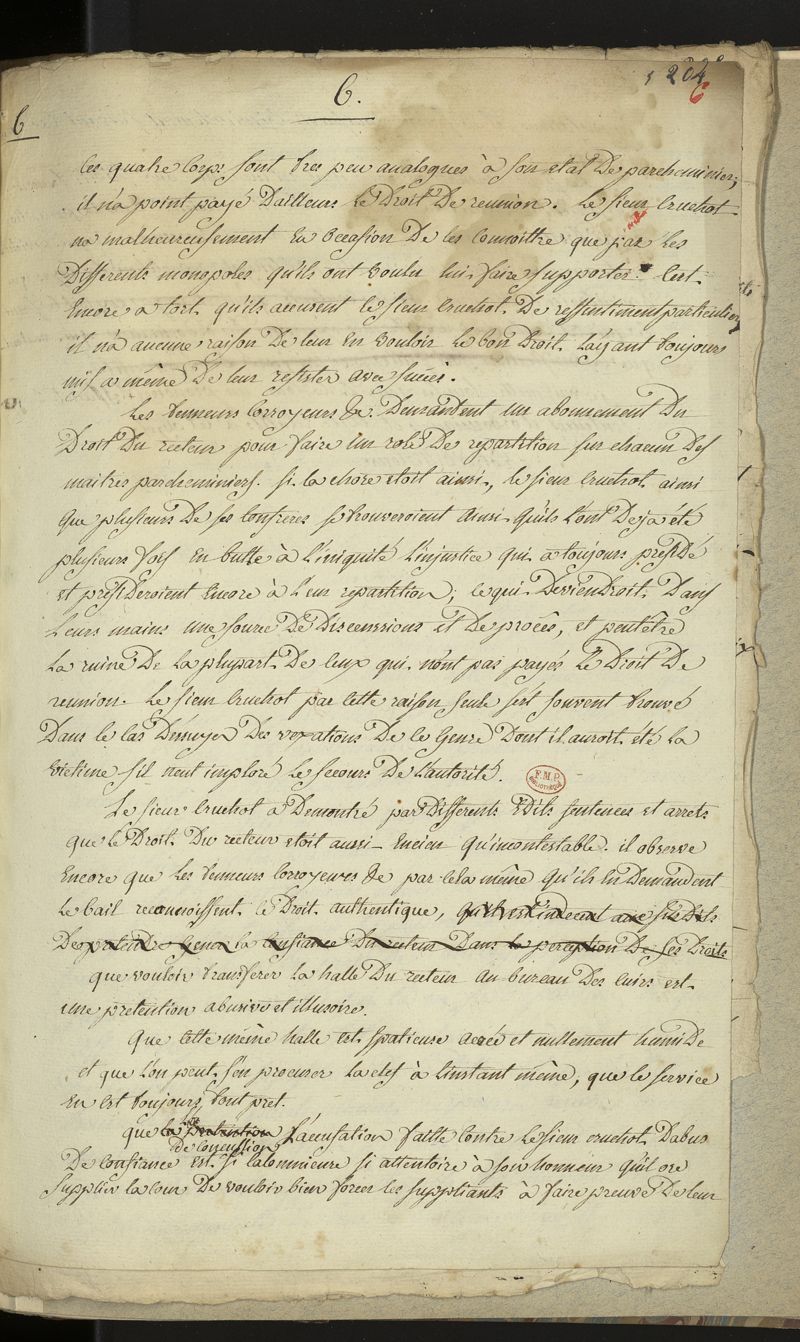 6.
204
6
6
les quatre Corps sont tres peu analogues à son etat De parcheminier;
il n'a point payé D'ailleurs le Droit De reunion. Le Sieur Cruchot
na malheureusement eu occasion De les Connoitre que par Les
Differents monopoles qu'ils ont voulu lui faire supporter. C'est
Encore a tort qu'ils accusent le sieur Cruchot De ressentiment particulier
il n'a aucune raison De leur En vouloir Le bon Droit L'ayant toujours
mis a même De leur resister avec succès.
Les tenneurs Corroyeurs &c. Demandent un abonnement Du
Droit Du recteur pour faire un role De repartition sur chacun Des
maitres parcheminiers. si la chose etoit ainsi, le sieur Cruchot ainsi
Que plusieurs De ses Confreres se trouveroient ainsi qu'ils L'ont Deja été
plusieurs fois En butte à L'iniquité L'injustice qui a toujours présidé
et présideroient Encore à Leur repartition; ce qui Deviendroit Dans
Leurs mains une source De Discenssions et De procès, et peutêtre
La ruine De la plupart De Ceux qui n'ont pas payés Le Droit De
reunion. Le sieur Cruchot par Cette raison seule s'est souvent trouvé
Dans le Cas D'essuyer Des vexations De ce Genre Dont il auroit été la
victime s'il n'eut imploré Le secours De L'autorité.
F.M.P.
BIBLIOTHÈQUE
Le sieur Cruchot a Demontré par Differents Edits sentences et arrets
que le Droit Du recteur etoit aussi Encien qu'incontestable. il observe
Encore que Les tenneurs Corroyeurs &c par Cela même Qu'ils En Demandent
Le bail reconnoissent le Droit authentique, qu'il est indecent
la Confiance Du recteur Dans la perception De ses Droits
que vouloir transferer La halle Du recteur au bureau Des Cuirs est
une pretention abusive et illusoire.
Que Cette même halle est spatieuse aerée et nullement humide
et que l'on peut s'en procurer la clef à L'instant même, que le service
En est toujours tout pret.
que la pretention L'accusation faitte Contre Le sieur Cruchot D'abus
de Concussion
De Confiance est si Calomnieuse si attentoire à son honneur Qu'il ose
supplier la Cour De vouloir bien forcer les suppliants à faire preuve De leur